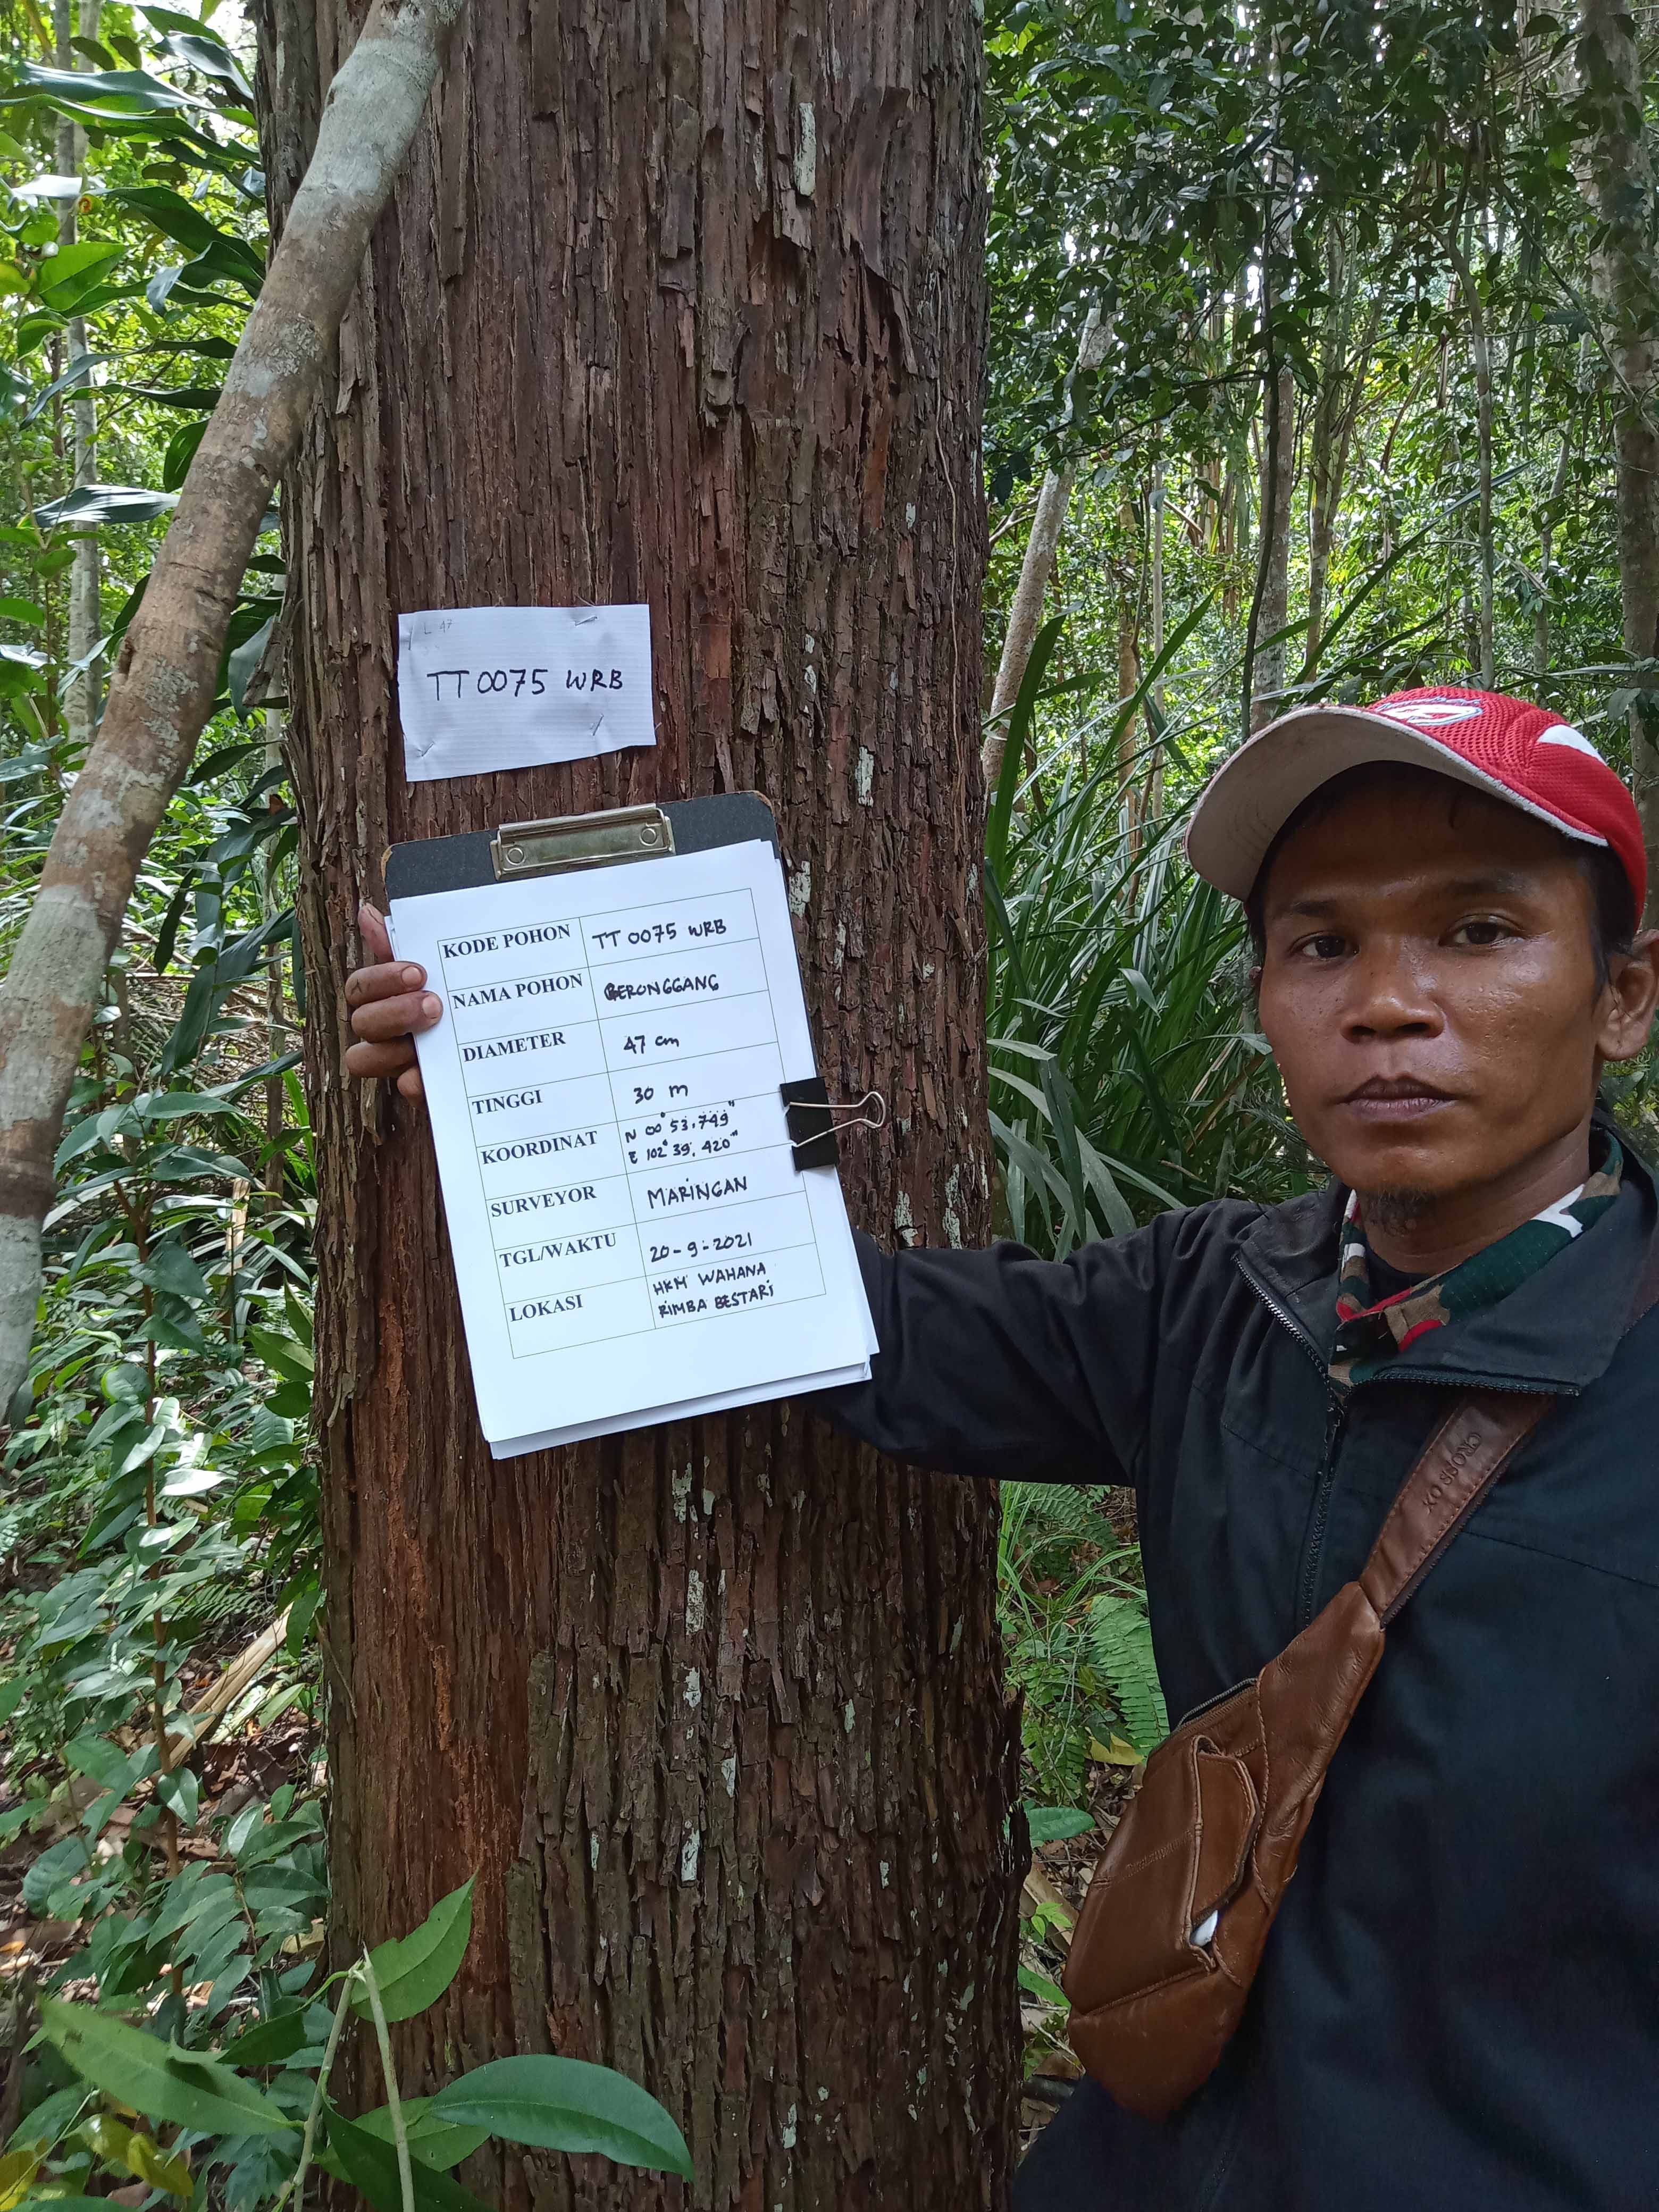 L 47
TT 0075 WRB
KODE POHON TT 0075 WRB
NAMA POHON GERONGGANG
DIAMETER 47 cm
TINGGI 30 m
KOORDINAT N 00° 53, 749"
E 102° 39, 420"
SURVEYOR MARINGAN
TGL/WAKTU 20-9-2021
LOKASI HKM WAHANA
RIMBA BESTARI
CROSS OX